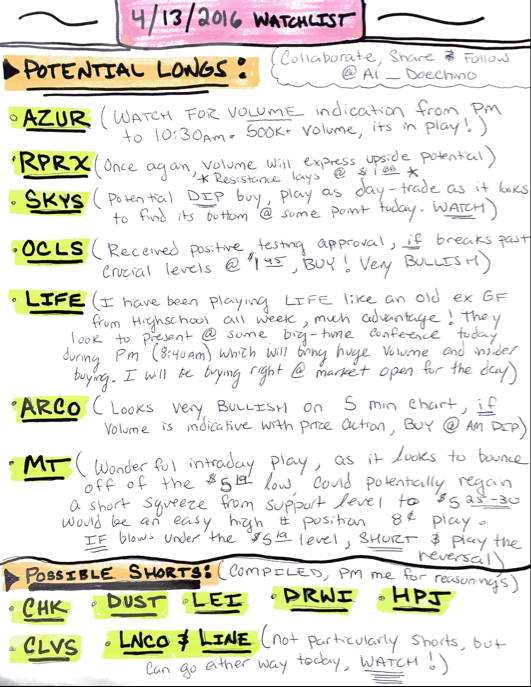 4/13/2016 WATCHLIST
POTENTIAL LONGS:
(Collaborate, Share & Follow
@ Al_Doechino
AZUR (WATCH FOR VOLUME indication from PM
to 10:30am. 500K+ volume, its in play!)
RPRX (Once again, volume will express upside potential)
* Resistance lays @ $1.00 *
SKYS (Potential DIP buy, play as day-trade as it looks
to find its bottom @ some point today. WATCH)
OCLS (Received positive testing approval, if breaks past
crucial levels @ $1.45, BUY! Very BULLISH)
LIFE (I have been playing LIFE like an old ex GF
from Highschool all week, much advantage! They
look to present @ some big-time conference today
during PM (8:40am) which will bring huge volume and insider
buying. I will be buying right @ market open for the day)
ARCO (Looks very BULLISH on 5 min chart, if
volume is indicative with price action, BUY @ AM DIP)
MT (Wonderful intraday play, as it looks to bounce
off of the $5 low, could potentially regain
a short squeeze from support level to $5 25-30
would be an easy high # position 8¢ play.
IF blows under the $5 level, SHORT & play the
reversal)
POSSIBLE SHORTS: (COMPILED, PM me for reasonings)
CHK DUST LEI DRWI HPJ
CLVS LNCO & LINE (not particularly shorts, but
can go either way today, WATCH!)